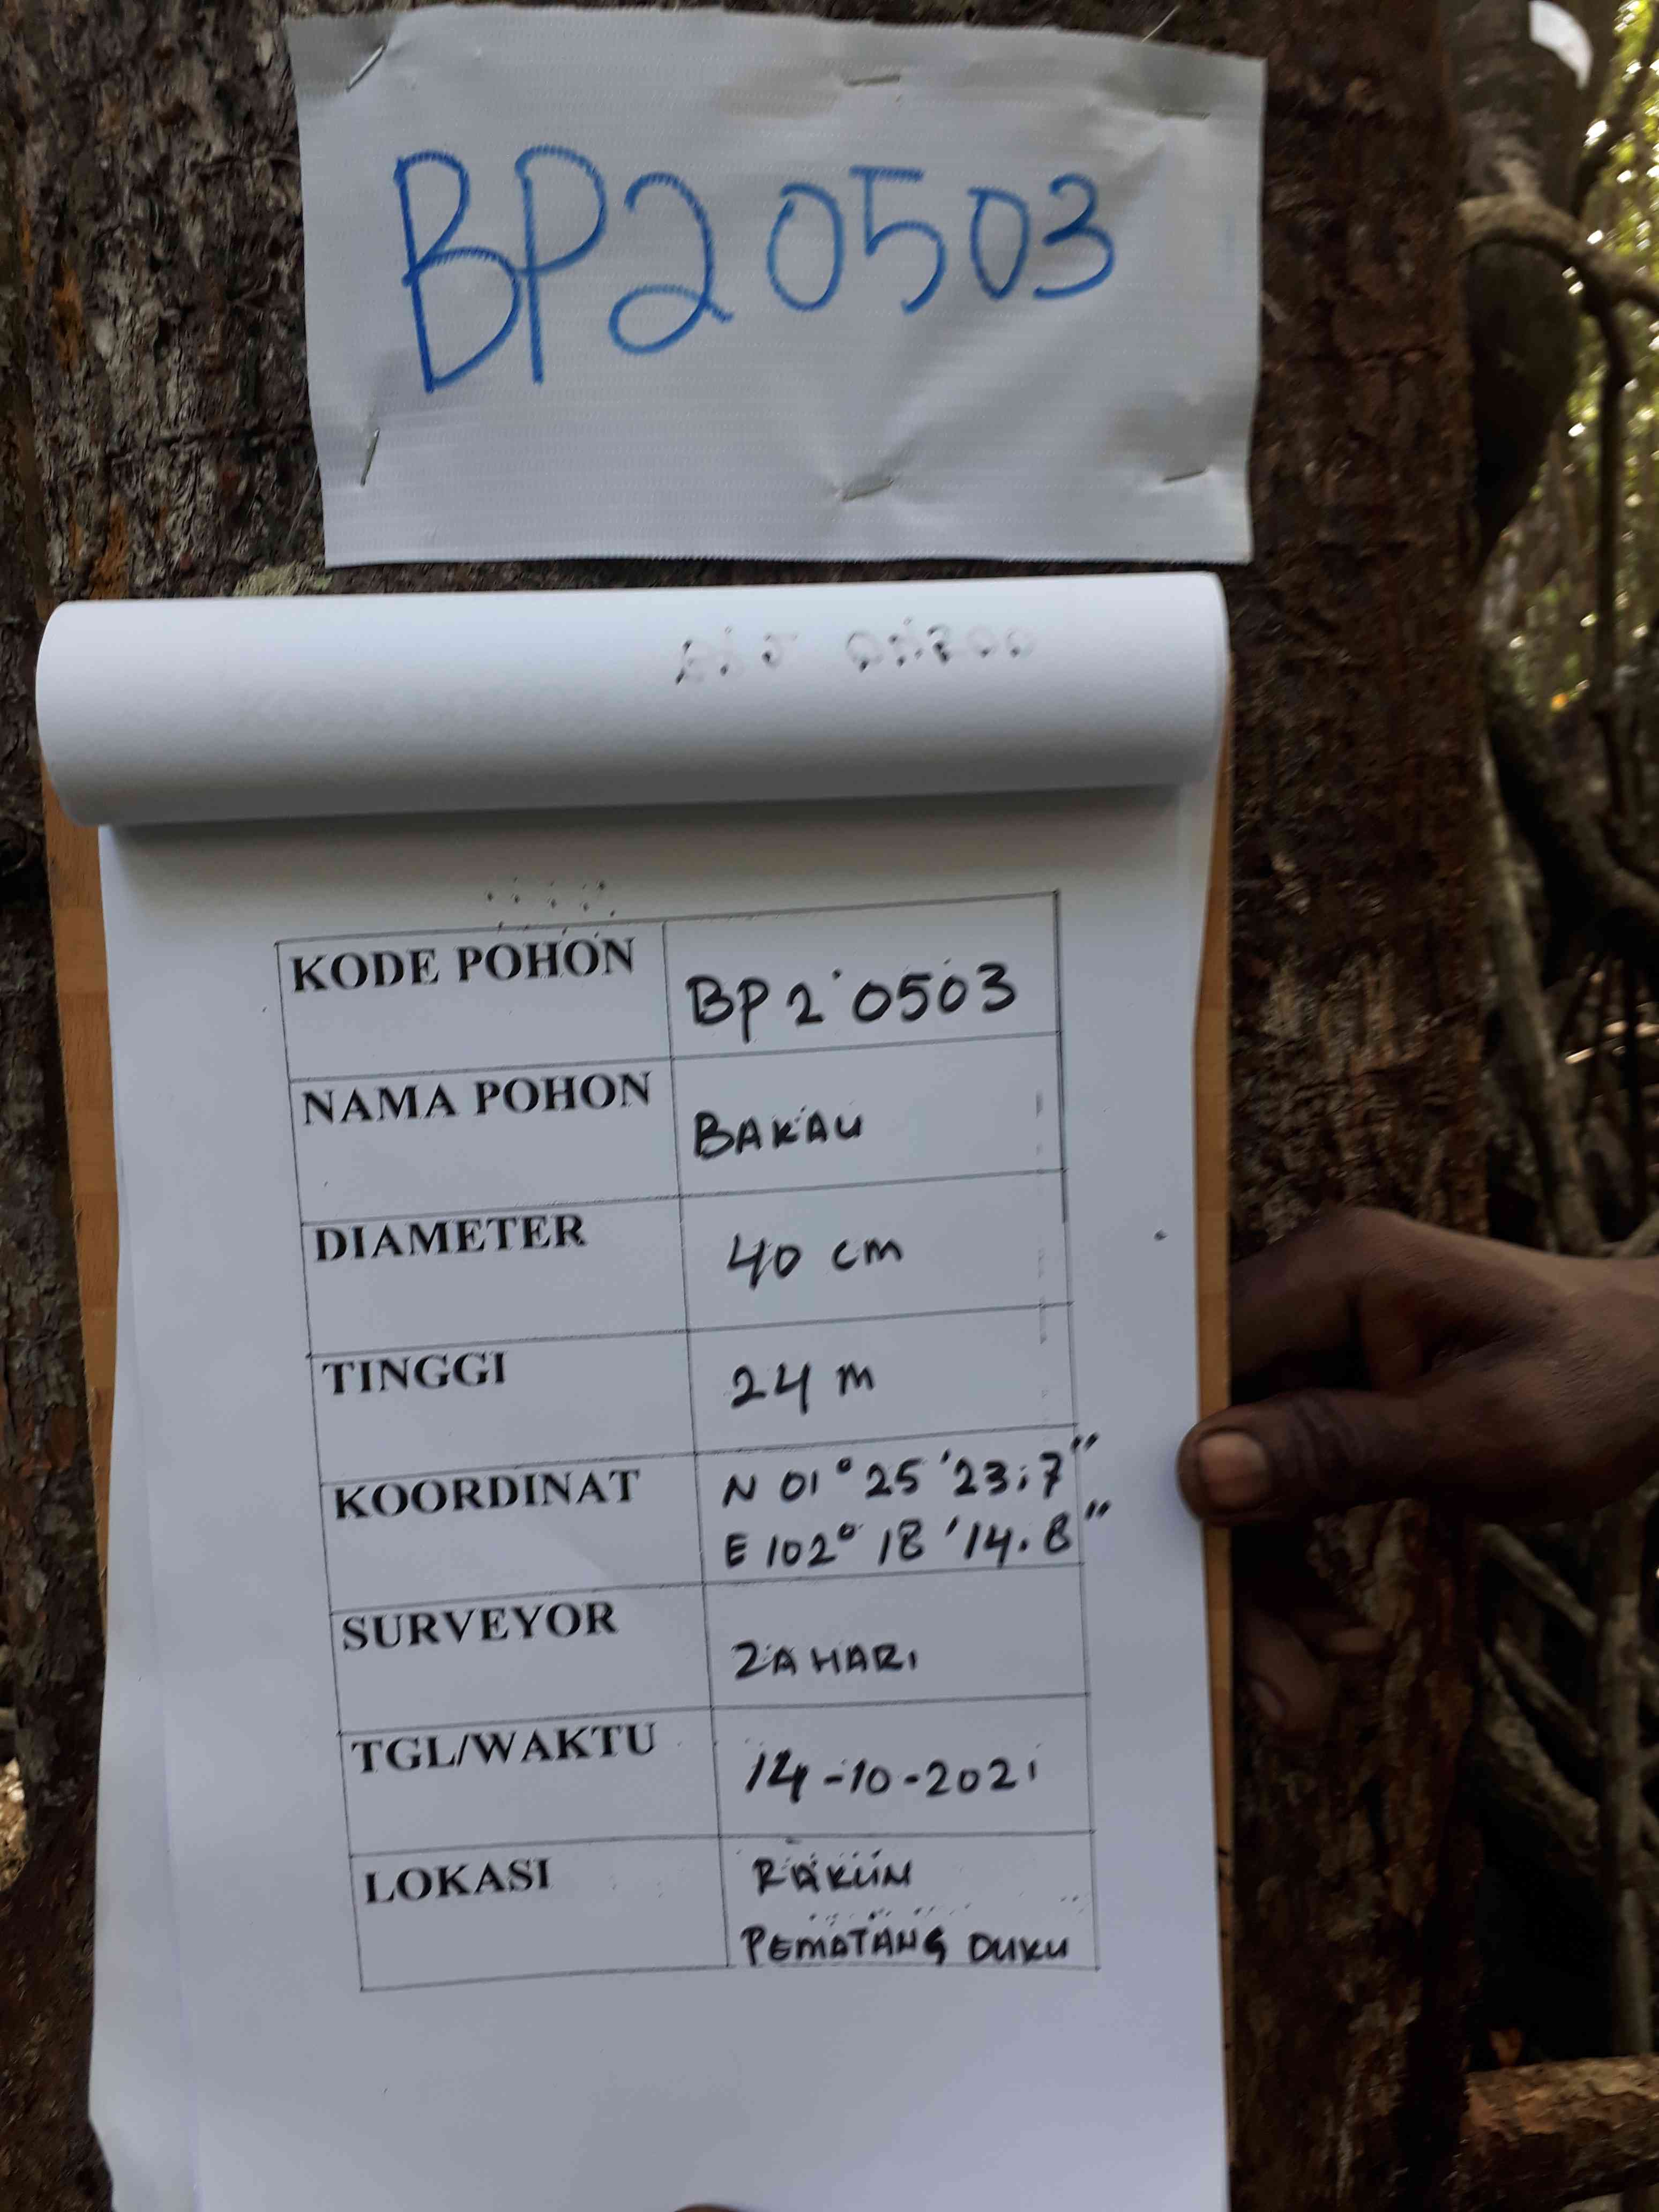 BP2 0503
KODE POHON
BP2 0503
NAMA POHON
BAKAU
DIAMETER
40 cm
TINGGI
24 m
KOORDINAT
N 01° 25 '23.7"
E 102° 18 '14.8"
SURVEYOR
ZAHARI
TGL/WAKTU
14-10-2021
LOKASI
RAKUM
PEMATANG DUKU